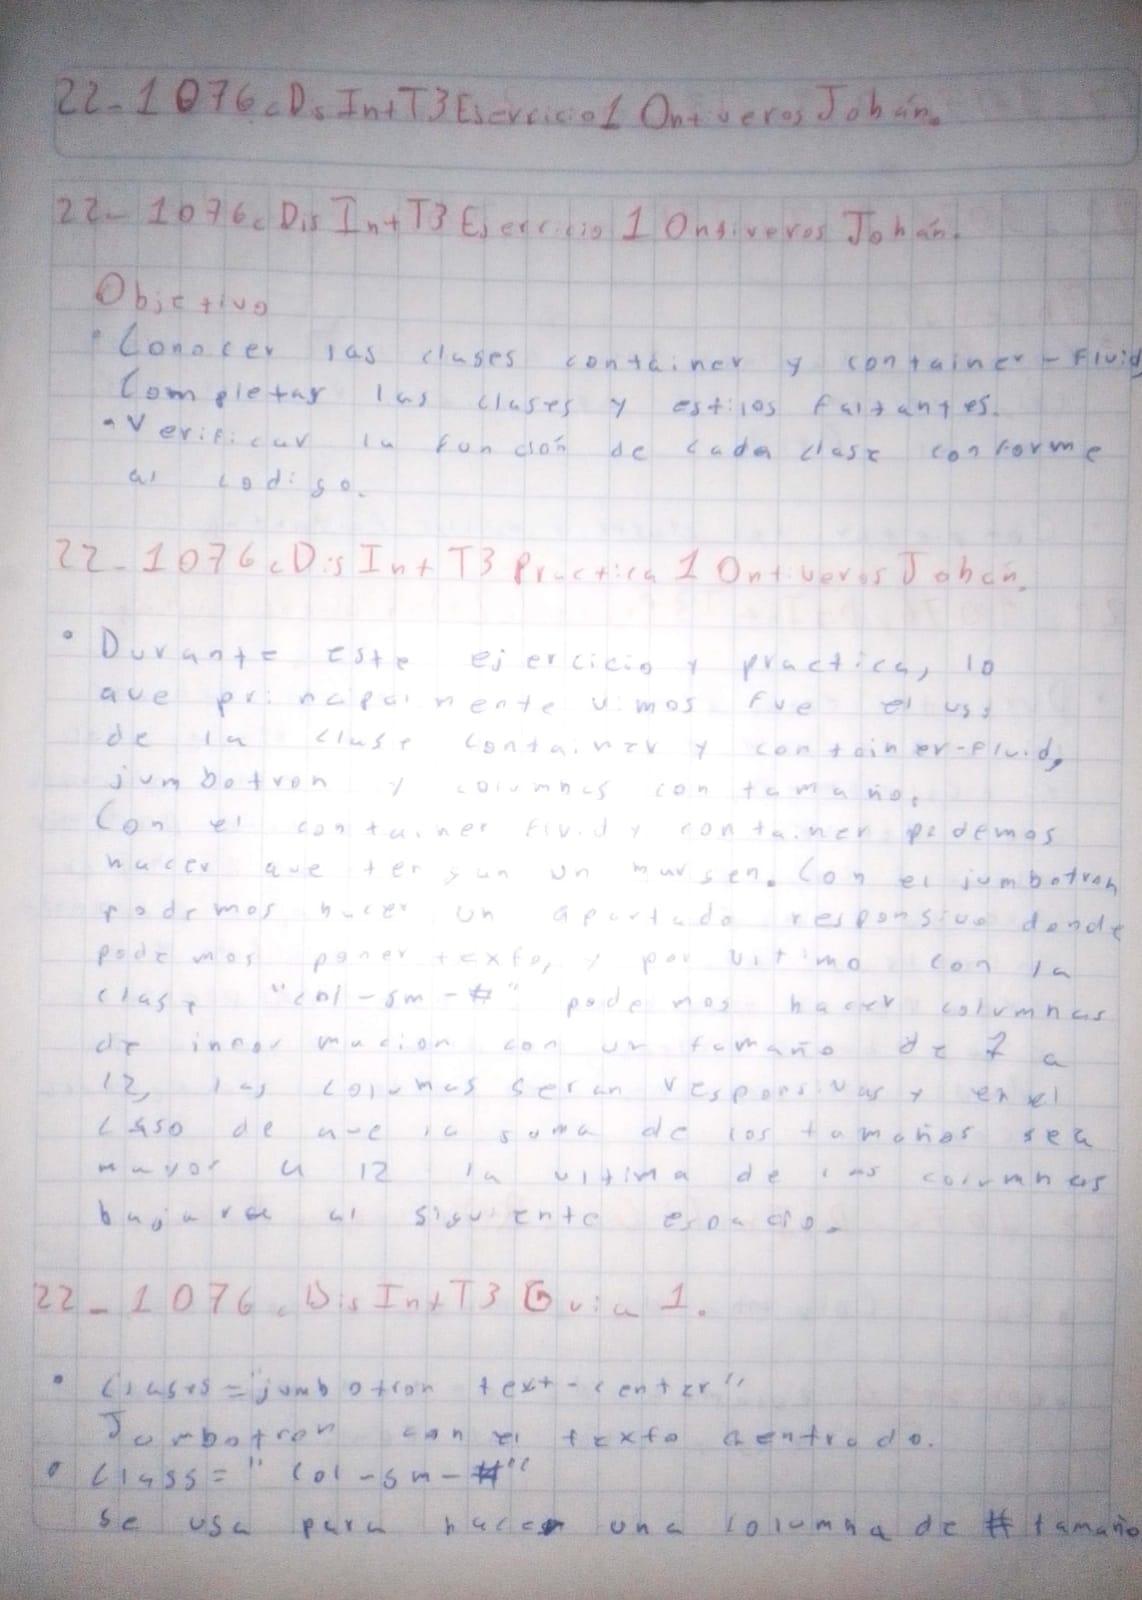 22-1076cDsIntT3Esercicio1 Ontiveros Johán.
22-1076cDisIntT3 Ejercicio 1 Ontiveros Johán.
Objetivo
• Conocer las clases container y container-fluid
Completar las clases y estilos faltantes.
• Verificar la función de cada clase conforme
al codigo.
22-1076cDisIntT3 Practica 1 Ontiveros Johán.
• Durante este ejercicio y practica, lo
que principalmente vimos fue el uso
de la clase container y container-fluid,
jumbotron y columnas con tamaño.
Con el container fluid y container podemos
hacer que tengan un margen. Con el jumbotron
podemos hacer un apartado responsivo donde
podemos poner texto, y por ultimo con la
clase "col-sm-#" podemos hacer columnas
de informacion con un tamaño de 1 a
12, las columas seran responsivas y en el
caso de que la suma de los tamaños sea
mayor a 12 la ultima de las columnas
bajara al siguiente espacio.
22-1076cDisIntT3 Guia 1.
• Class="jumbotron text-center"
Jumbotron con el texto centrado.
• Class="col-sm-#"
se usa para hacer una columna de # tamaño